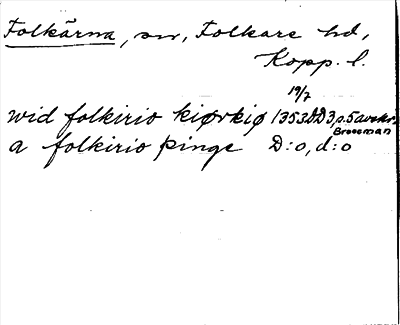 Folkärna, sn, Folkare hd,
Kopp. l.
19/7
wid folkirio kiørkiø 1353 DD3, p.5 avskr.
Broocman
a folkirio þinge D:o, d:o